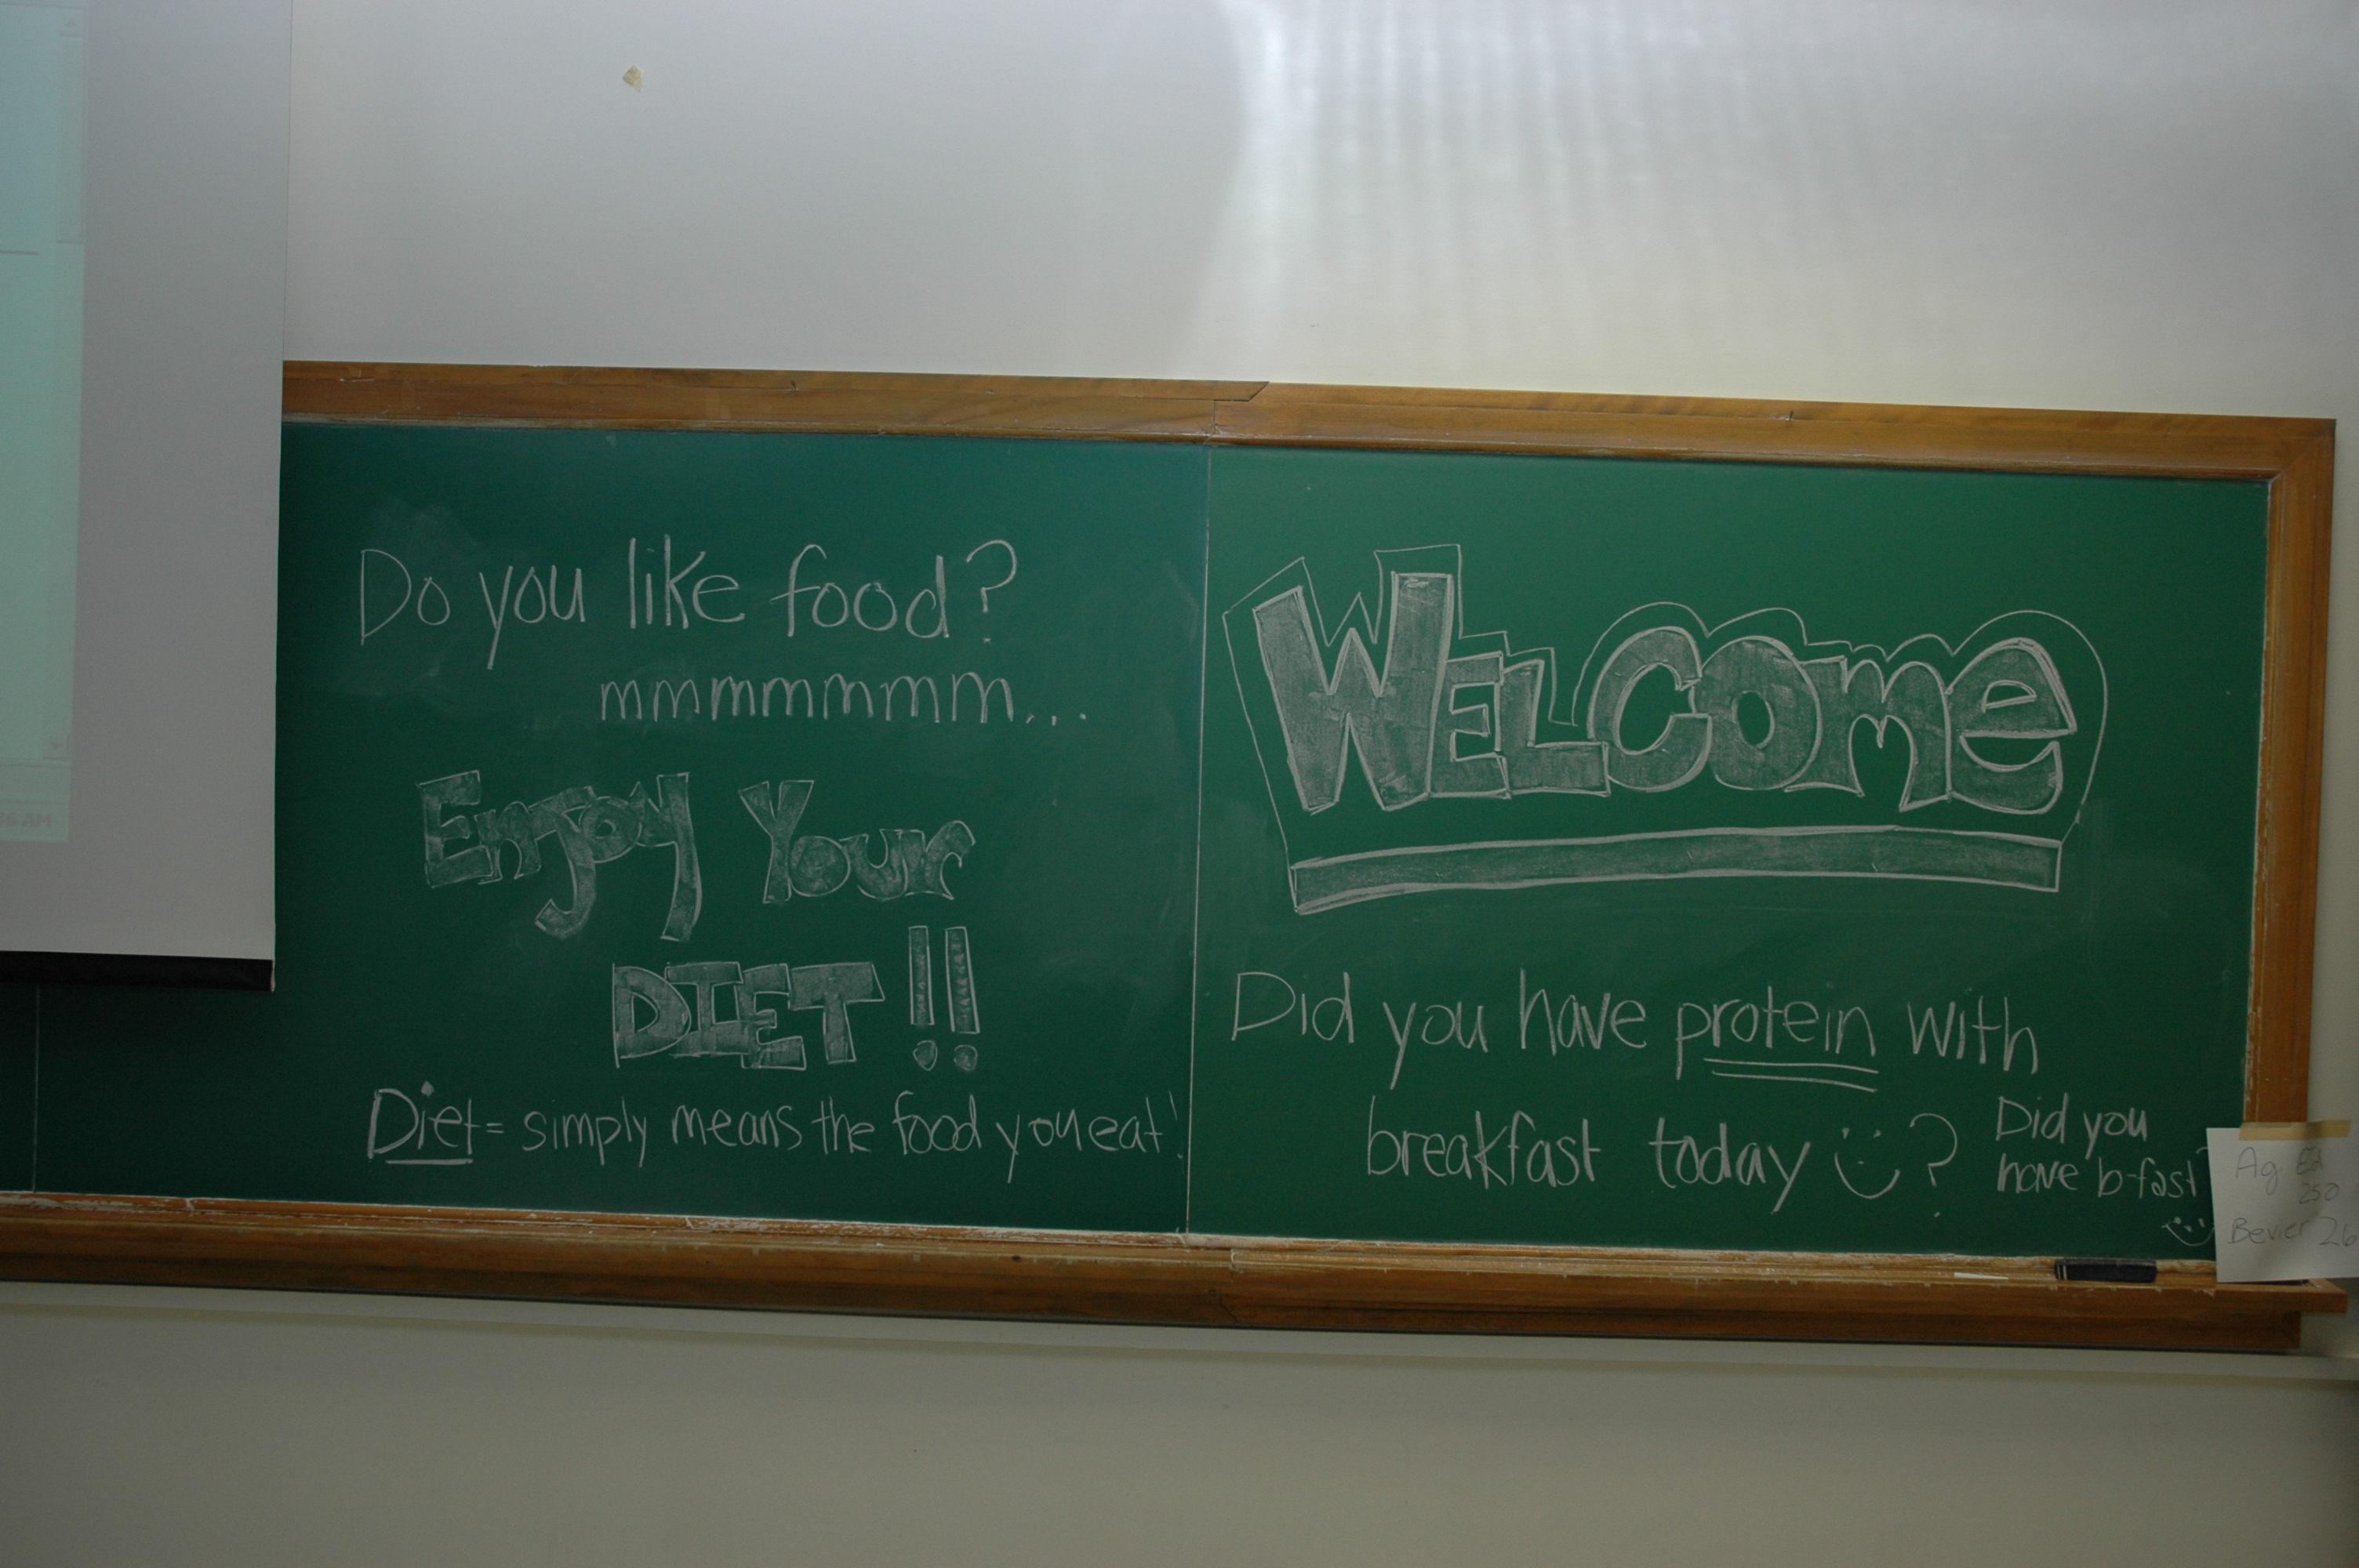 Do you like food?
mmmmmmmm...
Enjoy Your
DIET!!
Diet = simply means the food you eat!
WELCOMe
Did you have protein with
breakfast today ?
Did you
have b-fast?
Ag Ed
250
Bevier 26